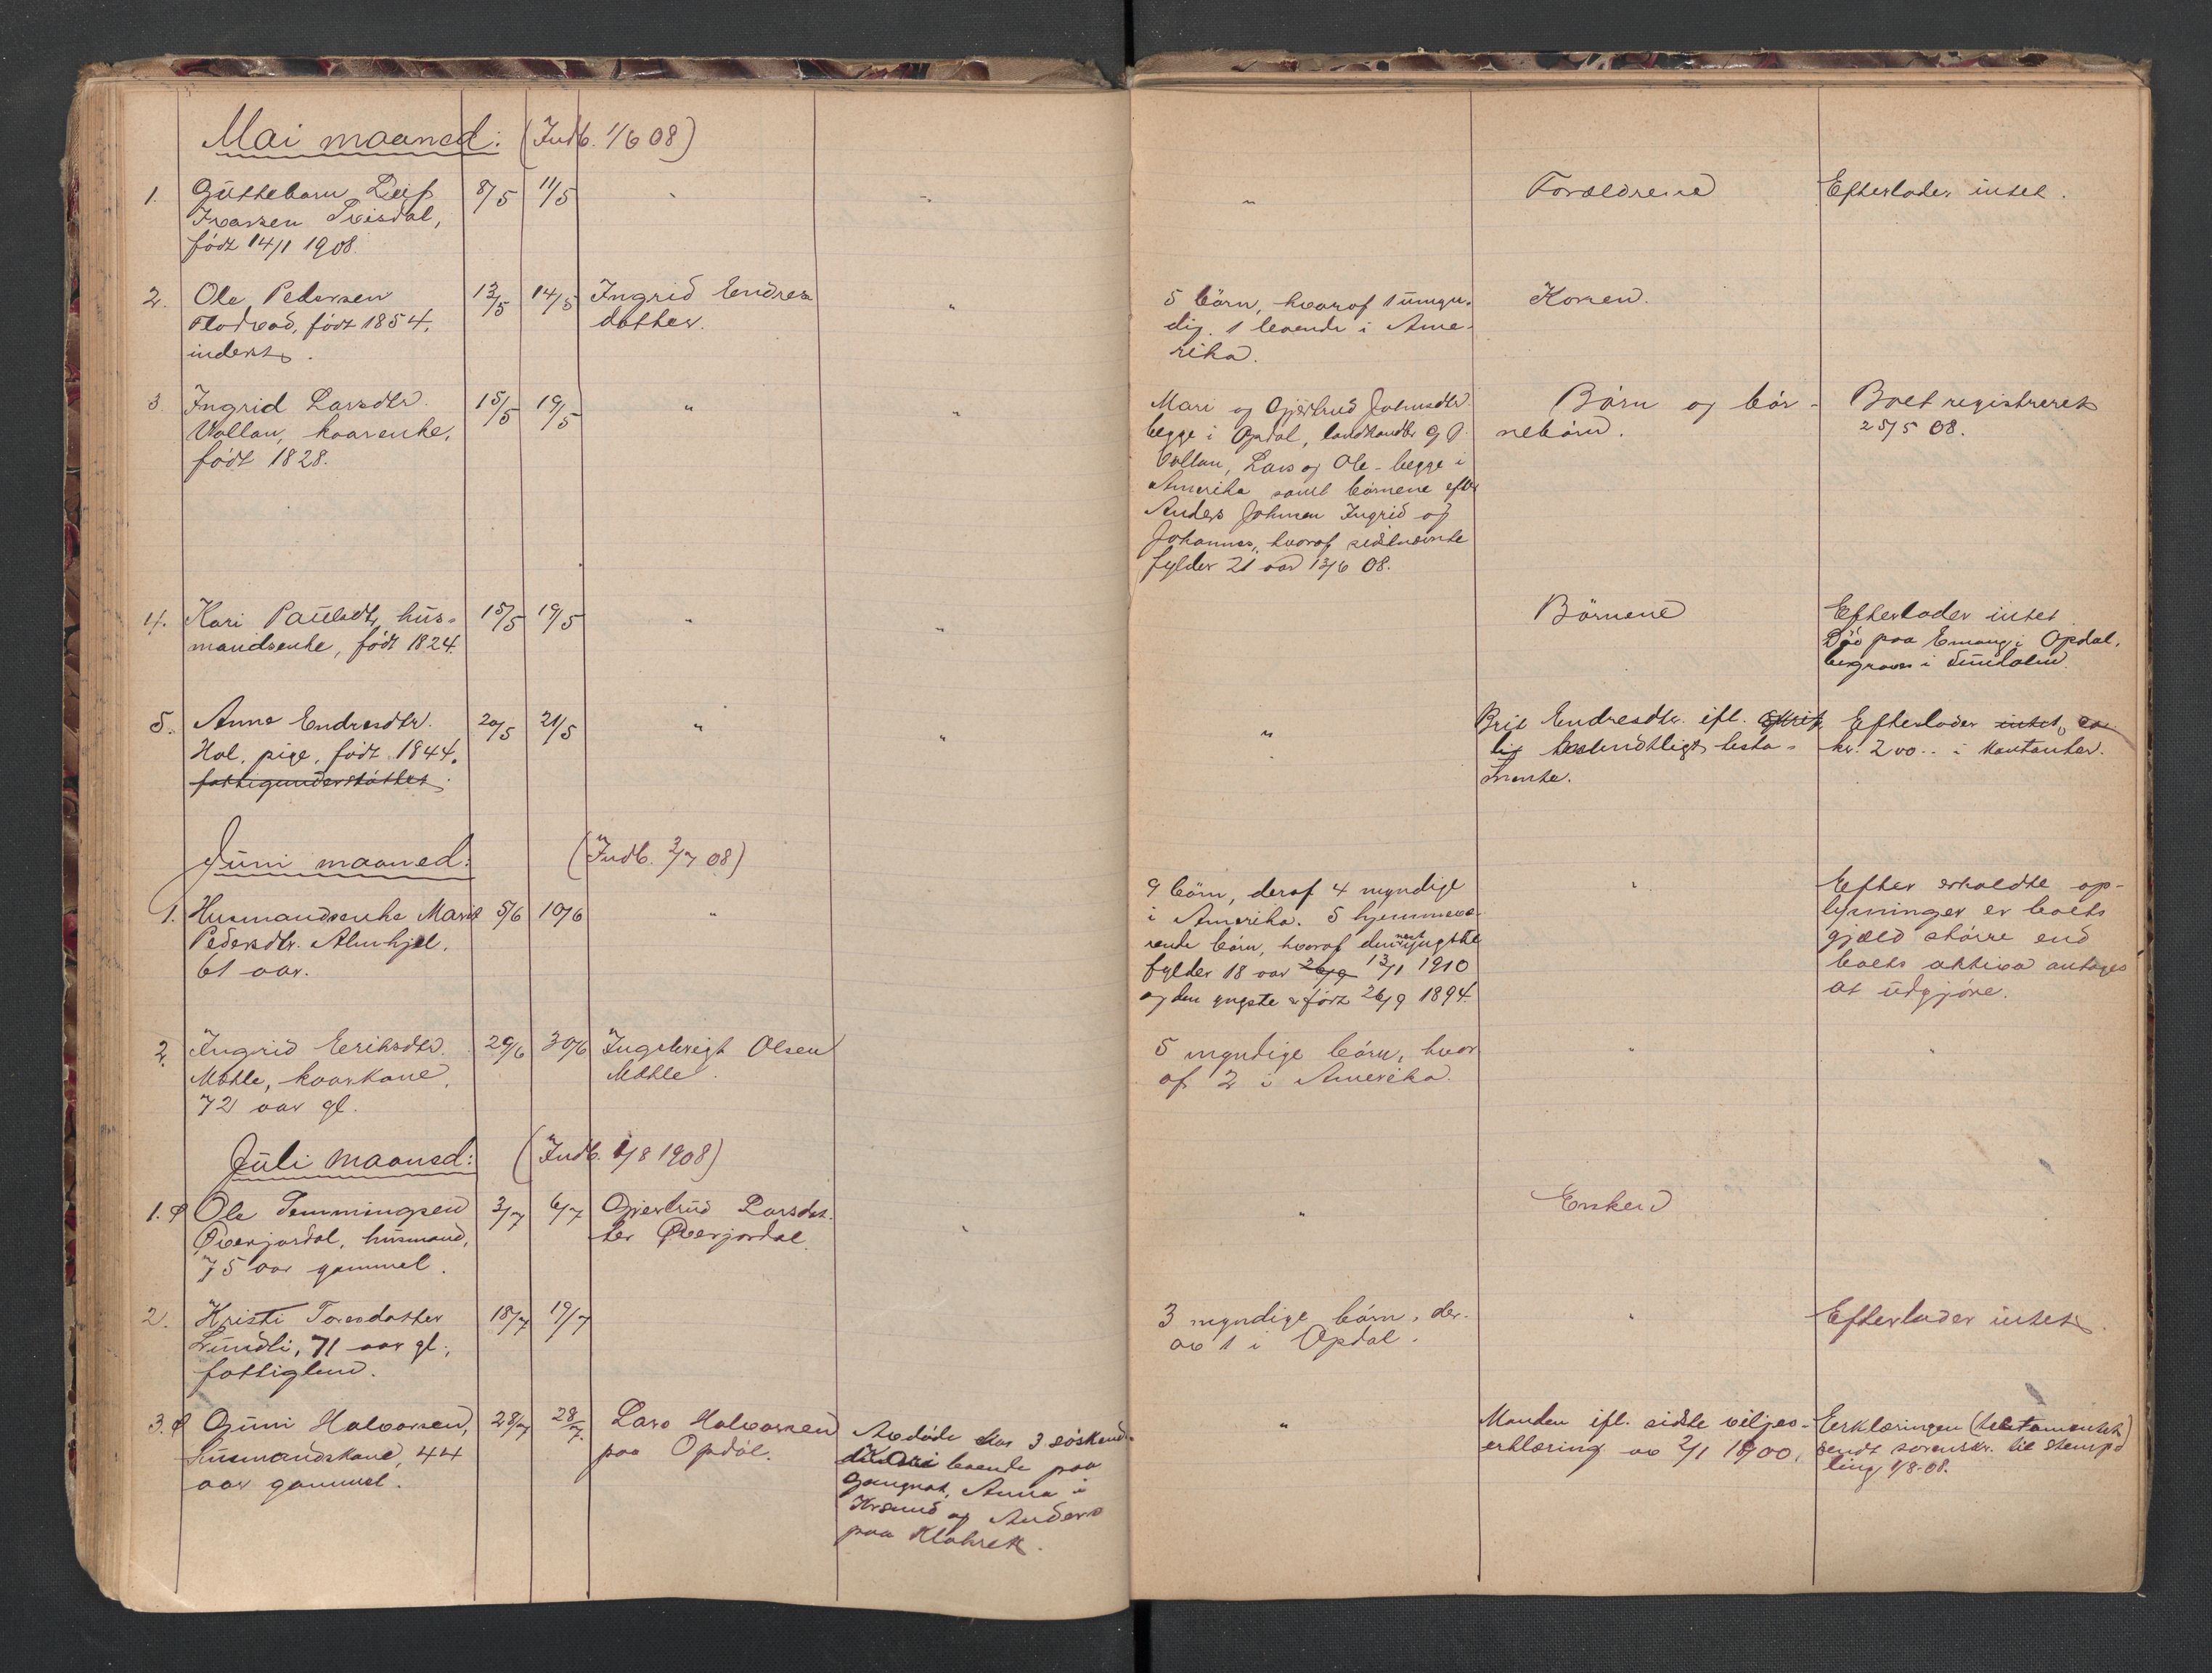 Mai maaned: (Indb. 1/6 08)
1. Guttebarn Leif 8/5 11/5 " " " Forældrene Efterlader intet.
Ivarsen
født 14/1 1908.
2. Ole Pedersen 13/5 14/5 Ingrid Endres- " 5 börn, hvoraf 1 umyn- Konen.
Flatvad, født 1854, datter. dig. 1 levende i Ame-
inderst. rika.
3. Ingrid Larsdtr. 15/5 19/5 " " Mari og Gjertrud Johnsdtr. Börn og bör- Boet registreret
Vollan, kaarenke, begge i Opdal, landhandler nebörn. 25/5 08.
født 1828. Vollan, Lars og Ole - begge i
Amerika samt börnene efter
Anders Johnsen Ingrid og
Johannes, hvoraf sidstnævnte
fylder 21 aar 13/6 08.
4. Kari Paulsdtr, hus- 15/5 19/5 " " Börnene Efterlader intet
mandsenke, født 1824. Död paa Emang i Opdal,
begraves i Sundalen.
5. Anne Endresdtr. 20/5 21/5 " " " Brit Endresdtr. ifl. Efterlader intet,
Hol, pige, født 1844. testa- kr. 200.. i kontanter.
fattigunderstøttet. mente.
Juni maaned: (Indb. 2/7 08)
1. Husmandsenke Marit 5/6 10/6 " 9 börn, deraf 4 myndige " Efter erholdte op-
Pedersdtr. Almhjel, i Amerika. 5 hjemmevæ- lysninger er boets
61 aar. rende börn, hvoraf den næst yngste gjæld større end
fylder 18 aar 26/9 13/1 1910 boets aktiva antages
og den yngste er født 26/9 1894. at udgjøre.
2. Ingrid Eriksdtr. 29/6 30/6 Ingebrigt Olsen 5 myndige börn, hvor " "
Mæhle, kaarkone, Mæhle. af 2 i Amerika.
72 aar gl.
Juli maaned: (Indb. 1/8 1908)
1. Ole Temmingsen 3/7 6/7 Gjertrud Larsdat- " " Enken
Øverjordal, husmand, ter Øverjordal.
75 aar gammel.
2. Kristi Toresdatter 18/7 19/7 3 myndige börn, der- " Efterlader intet.
Lundli, 71 aar gl, av 1 i Opdal.
fattiglem.
3. Guni Halvorsen, 28/7 28/7. Lars Halvorsen Avdøde har 3 søskend- " Manden ifl. sidste viljes- Erklæringen (testamentet)
husmandskone, 44 paa Opdøl. boende paa erklæring av 2/1 1900. sendt sorenskr. til stempl
aar gammel. Gaugnat, Anna i ling 1/8-08.
Krsund og Anders
paa